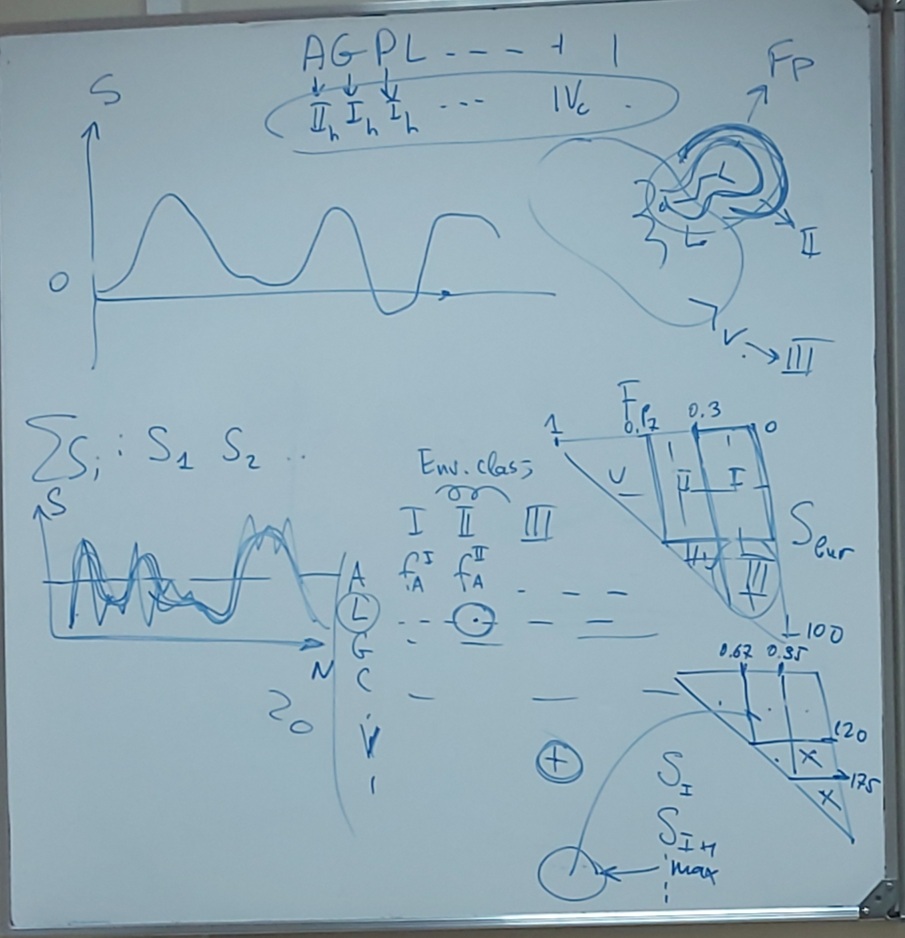 AGPL ---- + |
II_h I_h I_h --- IV_c .
S
0
Fp
II
V. → III
∑S_i : S_1 S_2 ..
S
N
20
Env. class
I II III
A f_A^I f_A^II - - -
L
G
C
V
1 0.3 0
V II I
III
S
100
0.67 0.35
120
175
X
X
+
S_I
S_II
max